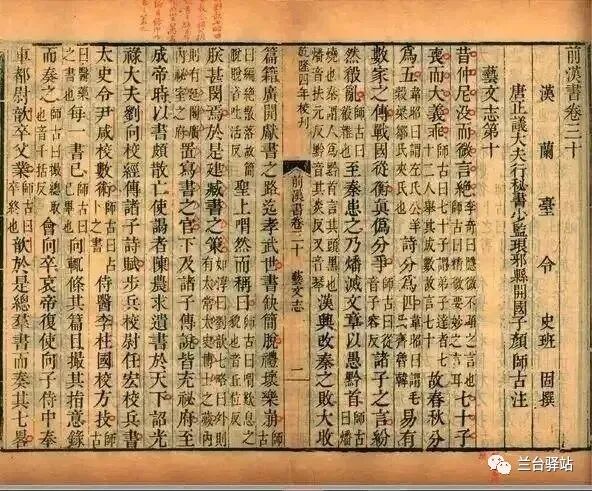 前漢書卷三十
漢蘭臺令史班固撰
唐正議大夫行祕書少監琅邪縣開國子顏師古注
藝文志第十
昔仲尼沒而微言絕李奇曰隱微不顯之言也師古曰精微要妙之言耳七十子
喪而大義乖師古曰七十子謂弟子達者七十二人舉其成數故言七十故春秋分
爲五韋昭曰謂左氏公羊穀梁鄒氏夾氏也詩分爲四韋昭曰謂毛氏齊魯韓易有
數家之傳戰國從衡真偽分爭師古曰從音子容反諸子之言紛
然殽亂師古曰殽雜也至秦患之乃燔滅文章以愚黔首師古曰燔
燒也秦謂人爲黔首言其頭黑也燔音扶元反黔音其炎反又音琴漢興改秦之敗大收
乾隆四年校刊
前漢書卷三十 藝文志 一
篇籍廣開獻書之路迄孝武世書缺簡脫禮壞樂崩師古
曰編絕散落故簡脫脫音吐活反聖上喟然而稱曰師古曰喟歎息之貌也音丘位反
朕甚閔焉於是建臧書之策如淳曰劉歆七略曰外則有太常太史博士之藏內
則有延閣廣內祕室之府置寫書之官下及諸子傳說皆充祕府至
成帝時以書頗散亡使謁者陳農求遺書於天下詔光
祿大夫劉向校經傳諸子詩賦步兵校尉任宏校兵書
太史令尹咸校數術師古曰占卜之書侍醫李柱國校方技師古
曰醫藥之書也每一書已師古曰已畢也向輒條其篇目撮其指意錄
而奏之師古曰撮總取也音千括反會向卒哀帝復使向子侍中奉
車都尉歆卒父業師古曰卒終也歆於是總羣書而奏其七畧
兰台驿站